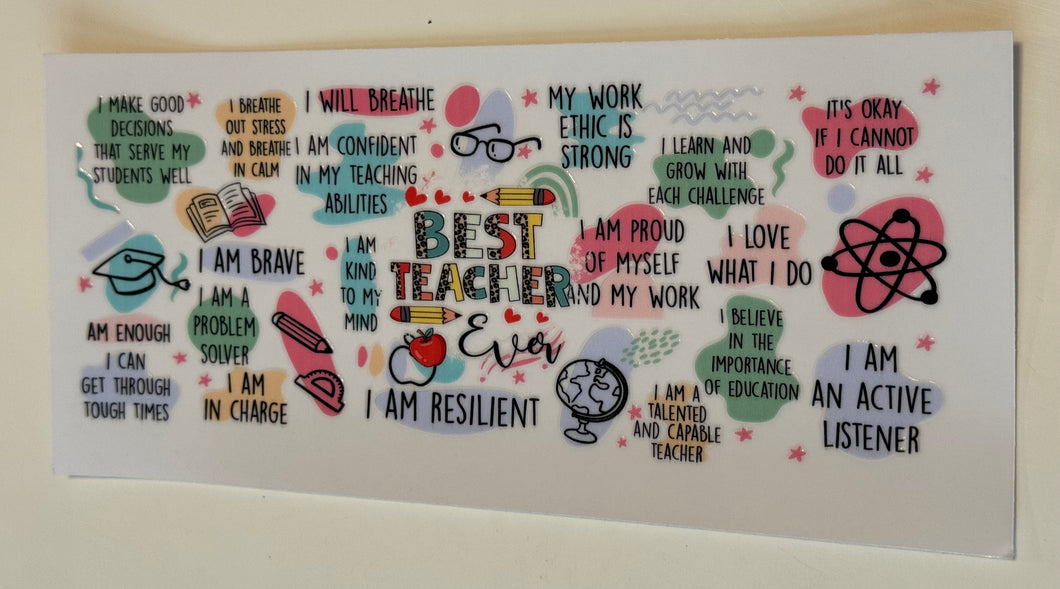 I MAKE GOOD
DECISIONS
THAT SERVE MY
STUDENTS WELL
I BREATHE
OUT STRESS
AND BREATHE
IN CALM
I WILL BREATHE
I AM CONFIDENT
IN MY TEACHING
ABILITIES
MY WORK
ETHIC IS
STRONG
I LEARN AND
GROW WITH
EACH CHALLENGE
IT'S OKAY
IF I CANNOT
DO IT ALL
I AM BRAVE
I AM
KIND
TO MY
MIND
BEST
TEACHER
Ever
I AM PROUD
OF MYSELF
AND MY WORK
I LOVE
WHAT I DO
AM ENOUGH
I AM A
PROBLEM
SOLVER
I CAN
GET THROUGH
TOUGH TIMES
I AM
IN CHARGE
I AM RESILIENT
I AM A
TALENTED
AND CAPABLE
TEACHER
I BELIEVE
IN THE
IMPORTANCE
OF EDUCATION
I AM
AN ACTIVE
LISTENER